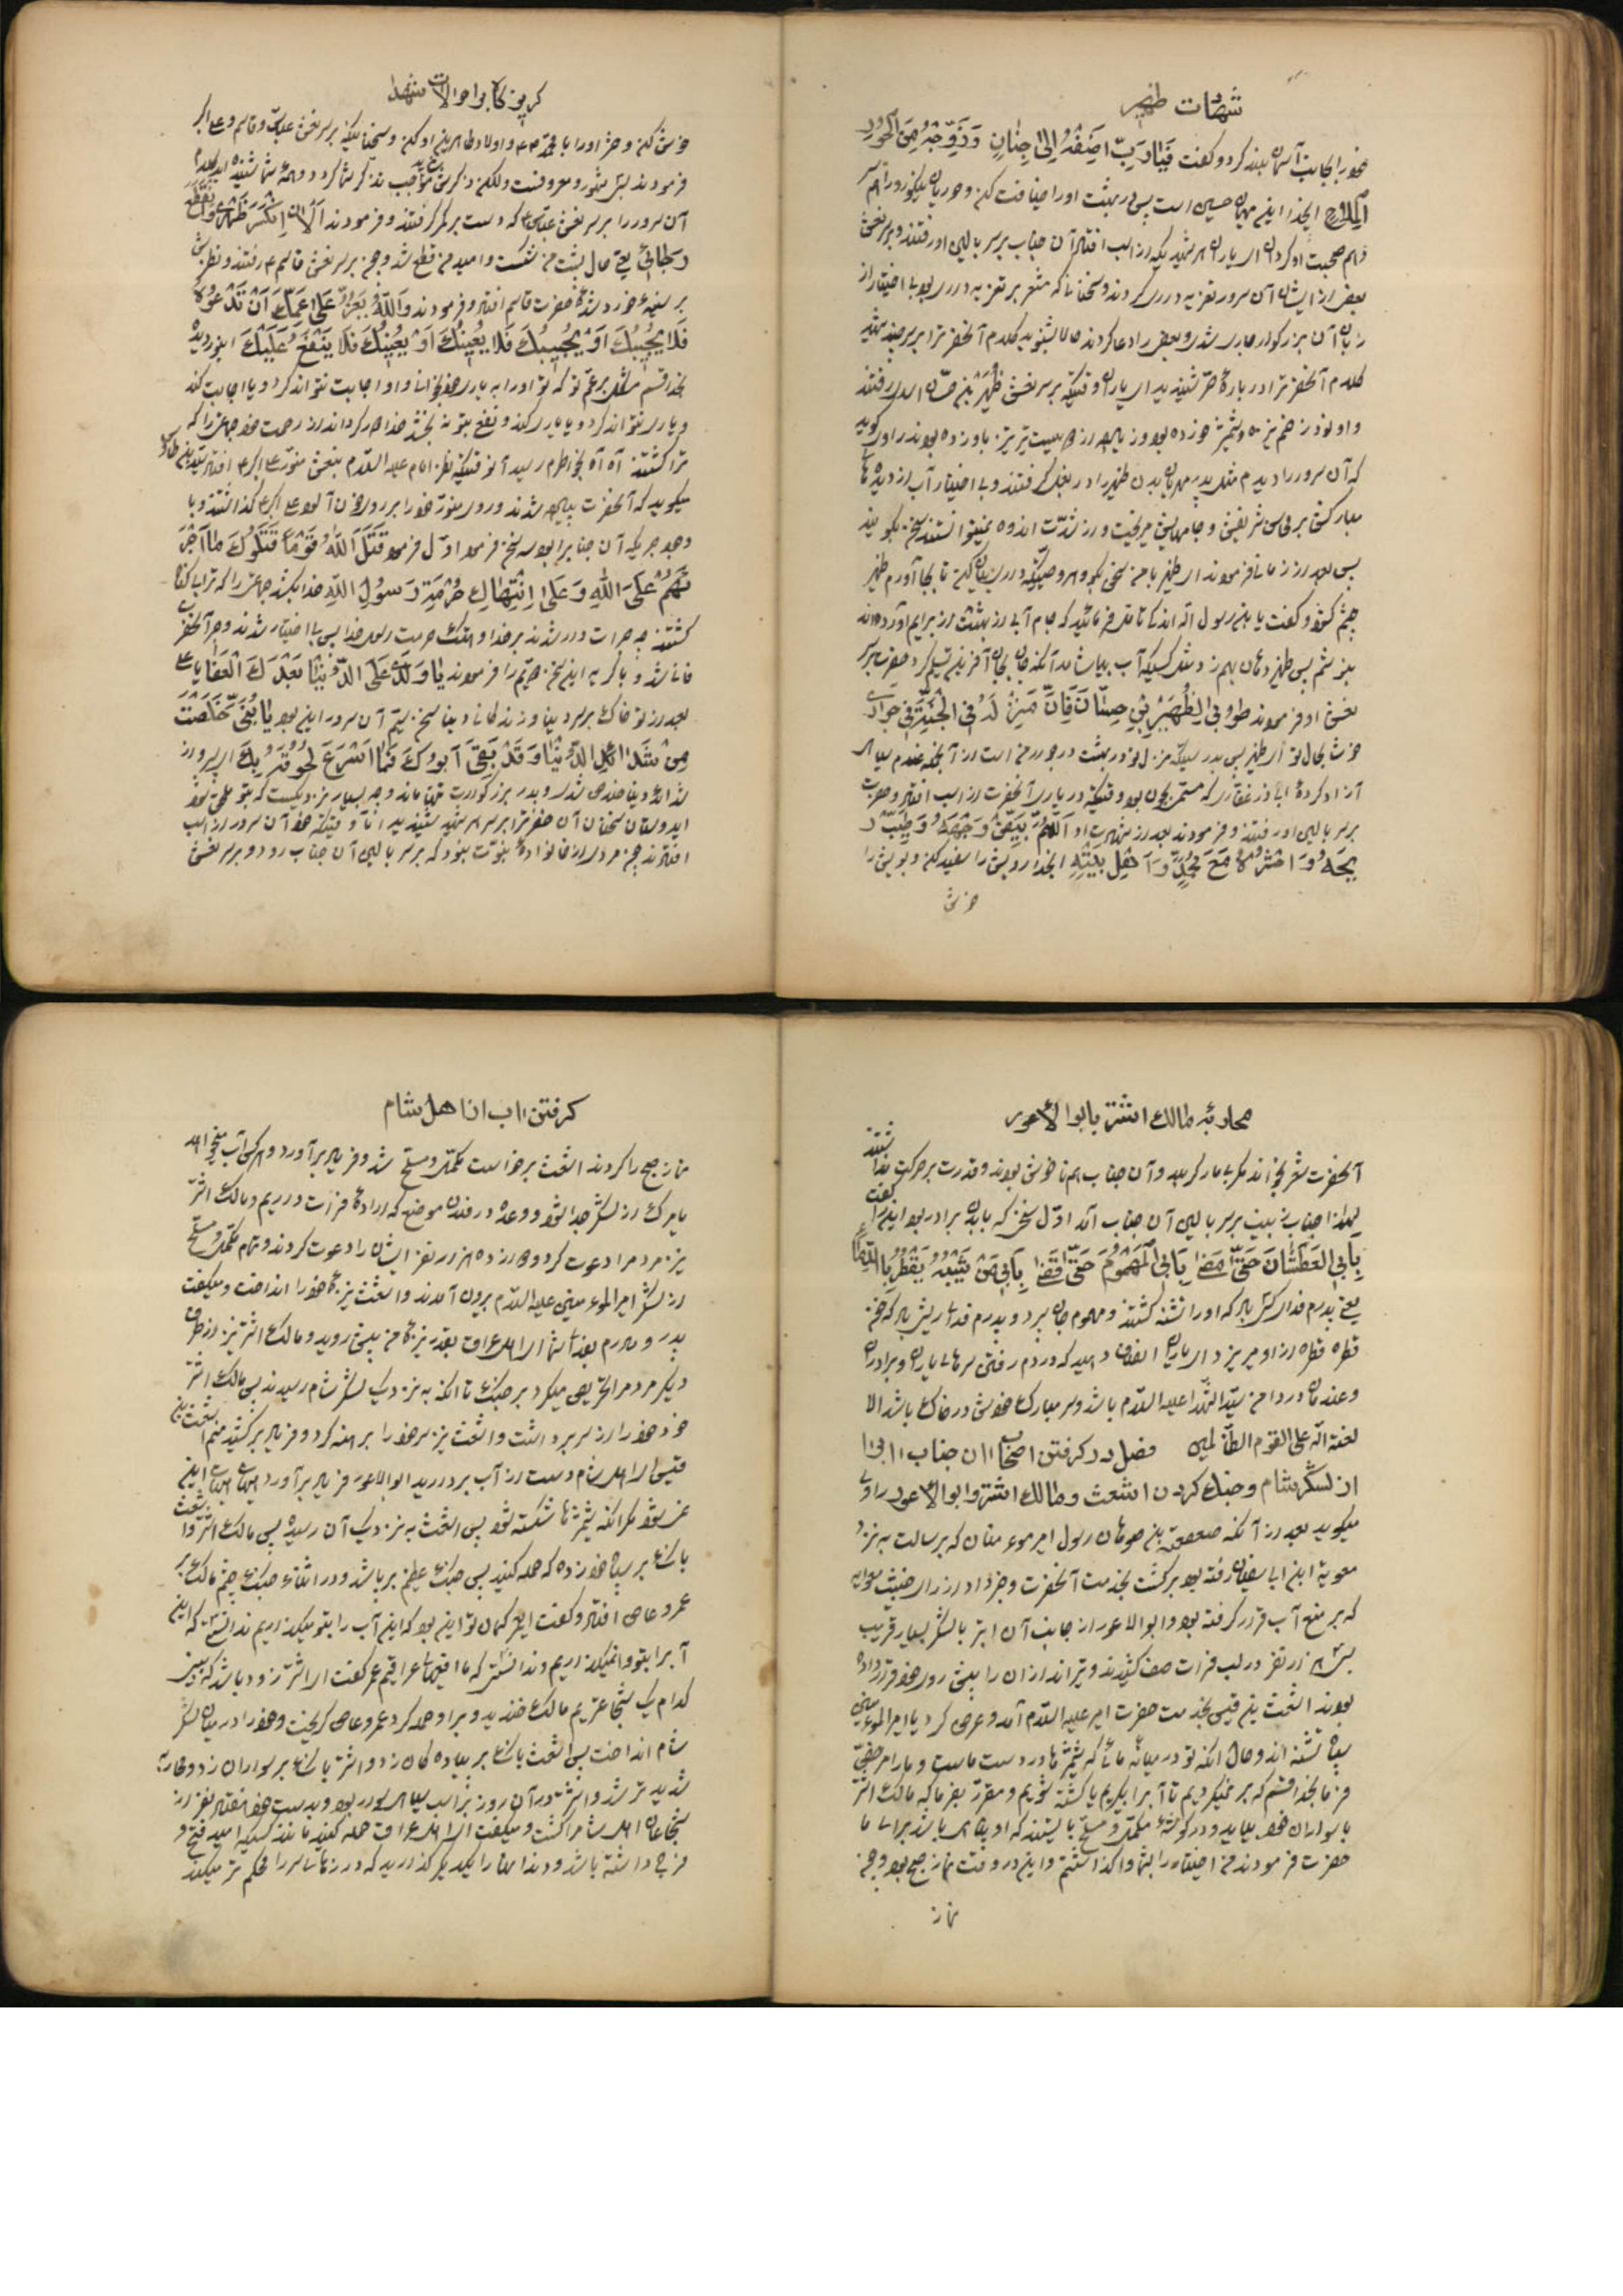 شهادت ظهیر
خود را بجانب آسمان بلند کرد و گفت فیا رب اضفه الی جنان و زوجه من الحور
الملاح ایخدا این مهمان حسین است پس در بهشت او را ضیافت کن و حوریان نیکو رو را هم
هم صحبت او گردان ای یاران هر شهیدیکه از اسب افتاد آن جناب بر سر بالین او رفتند و بر سر نعش
بعضی از ایشان آن سرور تعزیه داری کردند و سخنانیکه مشعر بر تعزیه داری بود بی اختیار از
زبان آن بزرگوار جاری شد و بعضی را دعا کردند حالا بشنوید کلام آنحضرترا بر سر چند شهید
کلام آنحضرترا در باره حر شنیدید ای یاران وقتیکه بر سر نعش ظهیر بن حسان اسدی رفتند
و او نود زخم نیزه و شمشیر خورده بود و زیاده از دویست تیر باو زده بودند راوی گوید
که آن سرور را دیدم مثل پدر مهربان بدن ظهیر را در بغل گرفتند و بی اختیار آب از دیده های
مبارکش بر محاسن شریفش و جامهایش میریخت و از شدت اندوه نمیتوانستند سخن بگویند
پس بعد از زمانی فرمودند ای ظهیر با من سخن بگو و هر وصیتیکه داری بیان کن تا بجا آورم ظهیر
چشم گشود و گفت یا بن رسول الله اندکی تامل فرمائید که جام آبی از بهشت از برایم آورده اند
بنوشم پس ظهیر دهان بهم زد مثل کسیکه آب بیاشامد آنگه جان بجان آفرین تسلیم کرد حضرت بر سر
نعش او فرمودند طوبی لظهیر بن حسان فان منزله فی الجنة فی جواری
خوش بحال تو ای ظهیر پس بدرستیکه منزل تو در بهشت در جوار من است از آنجمله غلام سیاه
آزاد کرده اباذر غفاری که مسمی بجون بود وقتیکه در یاری آنحضرت از اسب افتاد و حضرت
بر سر بالین او رفتند و فرمودند بعد از شهادت او اللهم بیض وجهه و طیب ر
یحه و احشره مع محمد و آهل بیته ایخدا رویش را سفید کن و بویش را
خوش
کریه کا بواحوالات شهدا
خوش کن و حشر او را با محمد ص و اولاد طاهرین او کن و سخنانیکه بر سر نعش عباس و قاسم و علی اکبر
فرمودند بس مشهور و معروفست ولکن ذکرش موجب تذکر شما گردد و همه شما شنیده اید
آن سرور را بر سر نعش عباس که دست بر کمر گرفتند و فرمودند الان انکسر ظهری و انقطع
رجائی یعنی حال پشت من شکست و امید من قطع شد و چون بر سر نعش قاسم ع رفتند و نظرش
بر سینه خورد شده حضرت قاسم افتاد فرمودند والله یعز علی عمک ان تدعوه
فلا یجیبک او یجیبک فلا یعینک او یعینک فلا ینفع علیک اینور دیده
بخدا قسم مشکل بر عم تو که تو او را به یاری خود بخوانی و او اجابت نتواند کرد و یا اجابت کند
و یاری نتواند کرد و یا یاری کند و نفع بتو نه بخشد خدا دور گرداند از رحمت خود جماعتی را که
ترا کشتند آه آه بخاطرم رسید آنوقتیکه نظر امام علیه السلام بنعش منور علی اکبر ع افتاد سید بن طاوس
میگوید که آنحضرت پیاده شدند و روی منور خود را بر روی خون آلود علی اکبر گذاشتند و با
وجد جریکه آن جنابرا بود سه سخن فرمود اول فرمود قتل الله قوما قتلوک ما اجر
ئهم علی الله و علی انتهاک حرمة رسول الله خدا بکشد جماعتی را که ترا با کفار
کشتند چه جرات داشتند بر خدا و هتک حرمت رسول خدا پس بی اختیار شدند و چون آنحضرت
فانی شد و با گریه این سخن دویم را فرمودند یا ولدی علی الدنیا بعدک العفا یا علی
بعد از تو خاک بر سر دنیا و زندکانی دنیا سخن سیم آن سرور این بود یا بنی خلصت
من شدائد الدنیا و قد بقی ابوک فما اسرع لحوقه بک ای پسر از
شدائد دنیا خلاص شدی و پدر بزرگوارت تنها ماند و چه بسیار نزدیکست که بتو ملحق شود
ایدوستان سخنان آن حضرترا بر سر هر شهید شنیدید اما وقتیکه خود آن سرور از اسب
افتادند هیچ مردی از خانواده نبوت نبود که بر سر بالین آن جناب رود و بر سر نعش
محاربه مالک اشتر با ابوالاعور
آنحضرت سخن بخواند مکر بیمار کربلا و آن جناب هم ناخوش بودند و قدرت بر حرکت نداشتند
لهذا جناب زینب بر سر بالین آن جناب آمد اول سخنی که بابدن برادر بود این را گفت
بابی العطشان حتی مضی بابی المهموم حتی قضی بابی من شیبه یقطر بالدماء
یعنی پدرم فدای کسی باد که او را تشنه کشتند و مهموم جان برد و پدرم فدای ریشی باد که خون
قطره قطره از او میریزد ای یاران انصاف دهید که در دم رفتن سرهای یاران و برادران
و عندمان در دامن سید الشهدا علیه السلام باشد و سر مبارک خودش در خاک باشد الا
لعنة الله علی القوم الظالمین فصل در گرفتن اصحاب آن جناب آب را
از لشکر شام و جنک کردن اشعث و مالک اشتر و ابوالاعور راوی
میگوید بعد از آنکه صعصعة بن صوحان رسول امیر مومنان که برسالت به نزد
معویة ابن ابا سفیان رفته بود برگشت بخدمت آنحضرت و خبر داد از رای خبیث معاویه
که بر منع آب قرار گرفته بود و ابوالاعور از جانب آن ابتر با لشکر بسیار قریب
بسی هزار نفر در لب فرات صف کشیدند و تیر اندازان را پیش روی خود قرار داده
بودند اشعث بن قیس بخدمت حضرت امیر علیه السلام آمد و عرض کرد یا امیر المومنین
سپاه تشنه اند و حال آنکه تو در میانه مائی که شمشیرها در دست ماست و ما را مرخص
فرما بخدا قسم که بر نمیگردیم تا آبرا بگیریم یا کشته شویم و مقرر بفرما که مالک اشتر
با سواران خود بیاید و در گوشه مکمل و مسلح بایستند که او پناهی باشد برای ما
حضرت فرمودند من اختیار را بشما واگذاشتم و این در وقت نماز صبح بود و چون
نماز
گرفتن اب از اهل شام
نماز صبح را کردند اشعث برخواست مکمل و مسلح شد و فریاد برآورد و هر کس آب میخواهد
یا مرک از لشکر جدا شود و وعده در فلان موضع که اراده فرات داریم و مالک اشتر
نیز مردم را دعوت کرد و دوازده هزار نفر ایشان را دعوت کردند و تمام مکمل و مسلح
از لشکر امیر المومنین علیه السلام بیرون آمدند و اشعث نیزه خود را انداخت و میگفت
پدر و مادرم بفدای شما ای اهل عراق بقدر نیزه من پیش روید و مالک اشتر نیز از طرف
دیگر مردم را تحریص میکرد بر جنک تا آنکه به نزدیک لشکر شام رسیدند پس مالک اشتر
خود خود را از سر برداشت و اشعث نیز سر خود را برهنه کرد و فریاد برکشید منم اشعث بن
قیس ای اهل شام دست از آب بردارید ابوالاعور فریاد برآورد هیهات هیهات این
نمیشود مکر آنکه شمشیرها شکسته شود پس اشعث به نزدیک آن رسید پس مالک اشتر و اشعث
بانک بر سپاه خود زده که حمله کنید پس جنک عظیم بر پا شد و در اثنای جنک چشم مالک بر
عمرو عاص افتاد و گفت ایعمر کمان تو این بود که این آب را بتو میگذاریم ندانستی که این
آبرا بتو وا نمیگذاریم و ندانستی که ما افعیهای عراقیم عمر گفت ای اشتر زود باشد که ببینی
کدام یک شجاعتریم مالک خندید و بر او حمله کرد عمرو عاص گریخت و خود را در میان لشکر
شام انداخت پس اشعث بانک بر پیاده کان زد و اشتر بانک بر سواران زد و محاربه
شدید تر شد و اشتر در آن روز بر اسب سیاه سوار بود و بدست خود هفتاد نفر از
شجاعان اهل شام را کشت و میگفت ای اهل عراق حمله کنید مانند کسیکه امید فتح و
فرج داشته باشد و دندانها را بیکدیگر گذارید که در زمان سر را محکم تر میکند